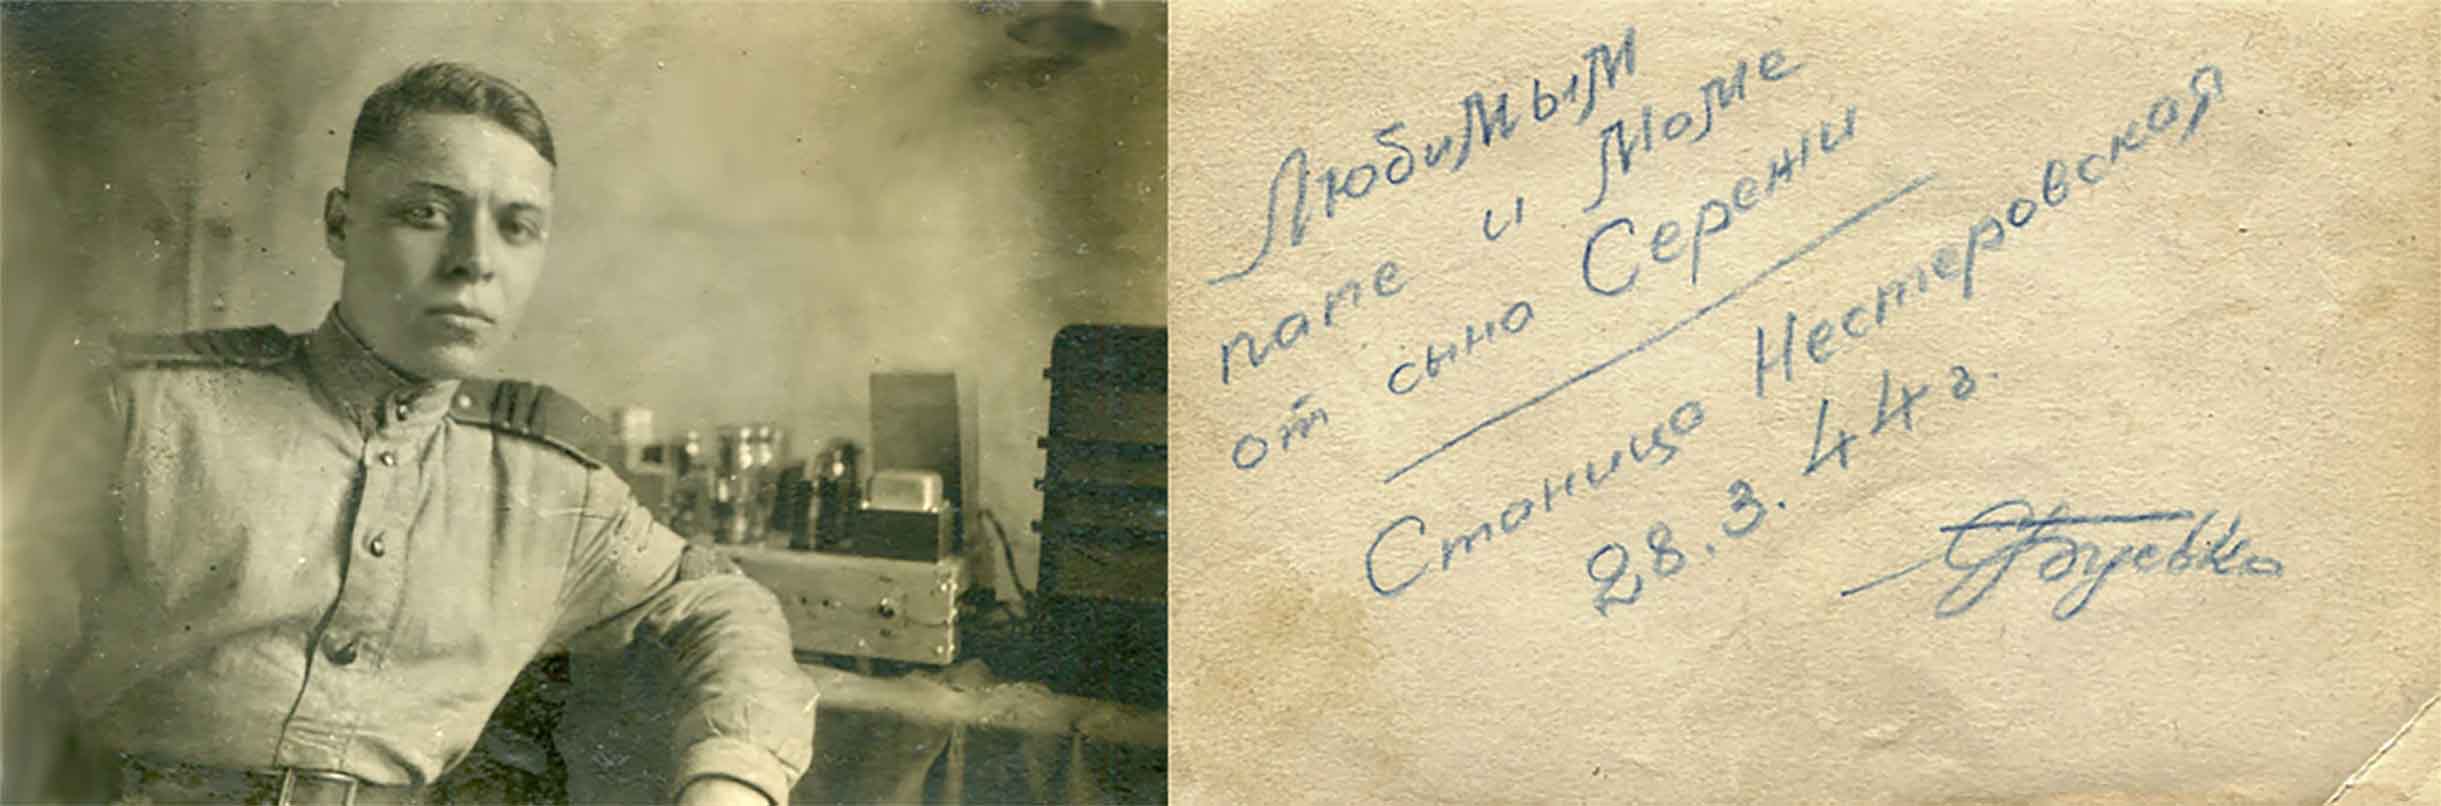 Любимым
папе и Маме
от сына Серёжи
Станица Нестеровская
28.3.44 г.